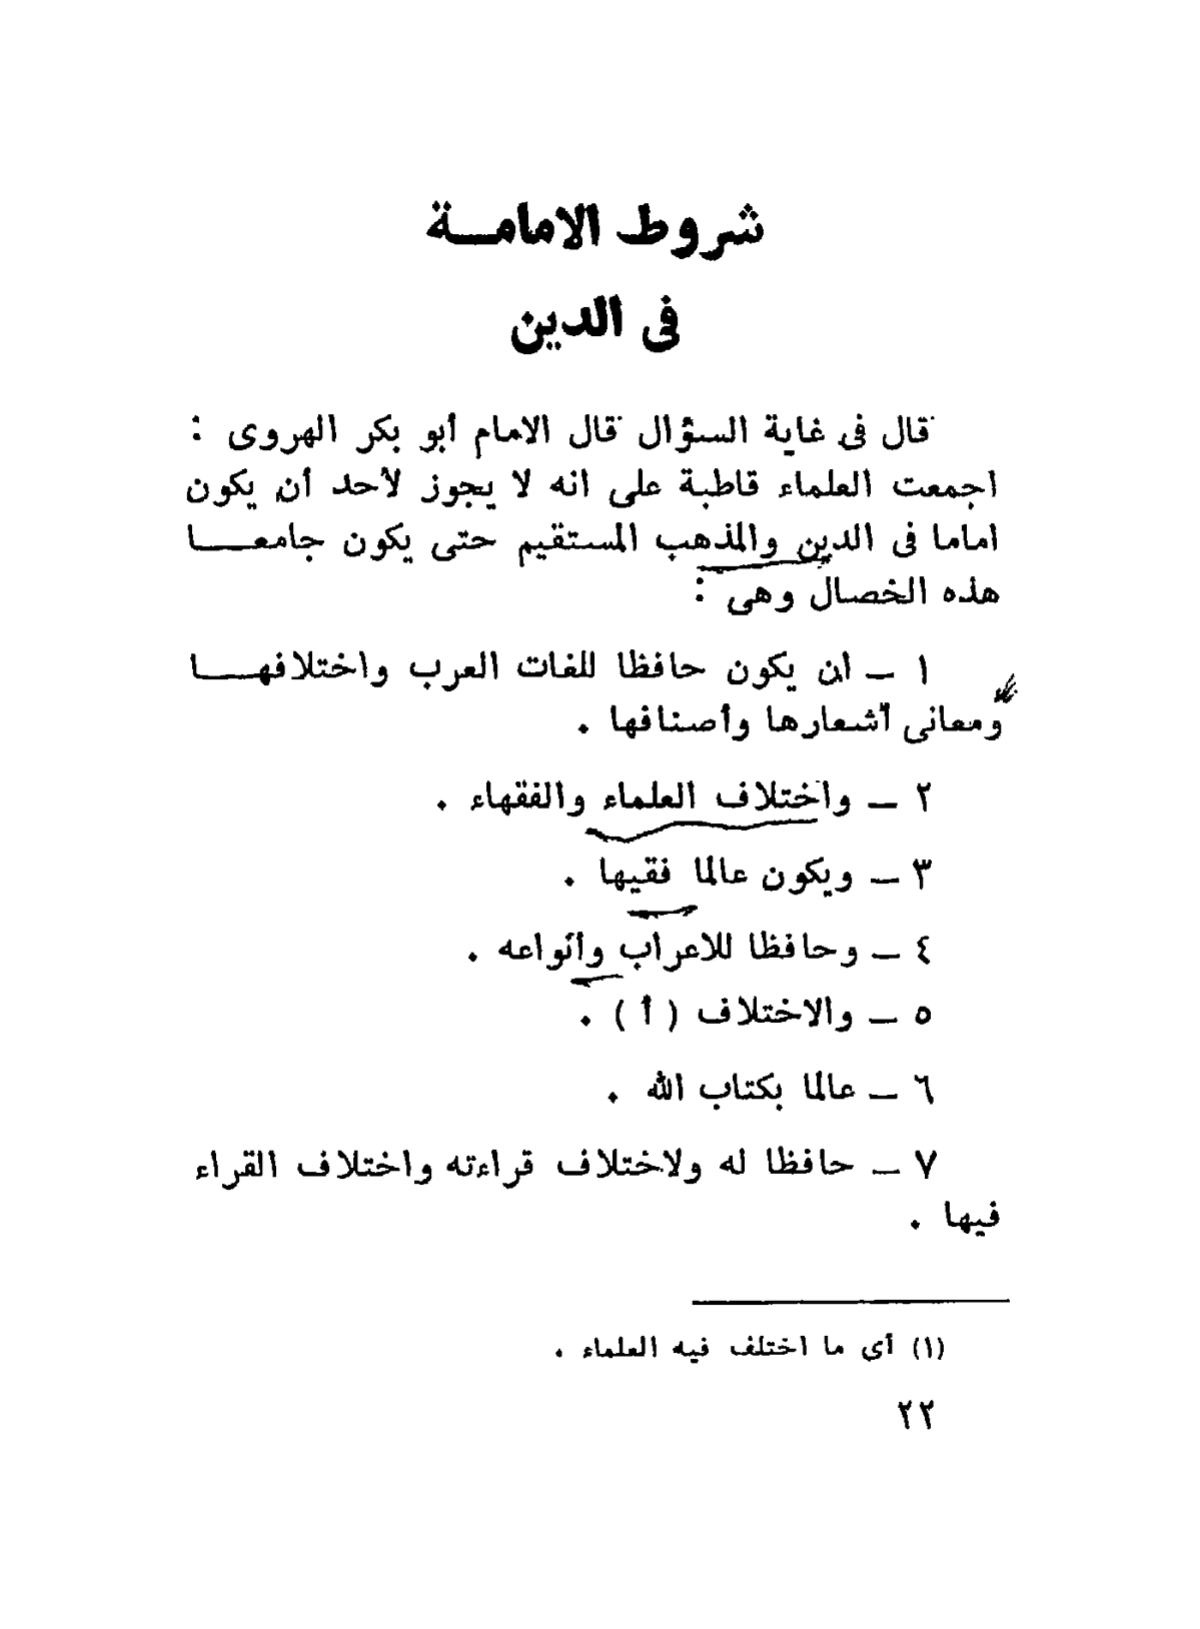 شروط الامامـــة
فى الدين
قال فى غاية السؤال قال الامام أبو بكر الهروى :
اجمعت العلماء قاطبة على انه لا يجوز لأحد أن يكون
اماما فى الدين والمذهب المستقيم حتى يكون جامعـــا
هذه الخصال وهى :
١ – ان يكون حافظا للغات العرب واختلافهـــا
ومعانى أشعارها وأصنافها .
٢ – واختلاف العلماء والفقهاء .
٣ – ويكون عالما فقيها .
٤ – وحافظا للاعراب وأنواعه .
٥ – والاختلاف ( أ ) .
٦ – عالما بكتاب الله .
٧ – حافظا له ولاختلاف قراءته واختلاف القراء
فيها .
(١) أى ما اختلف فيه العلماء .
٢٢